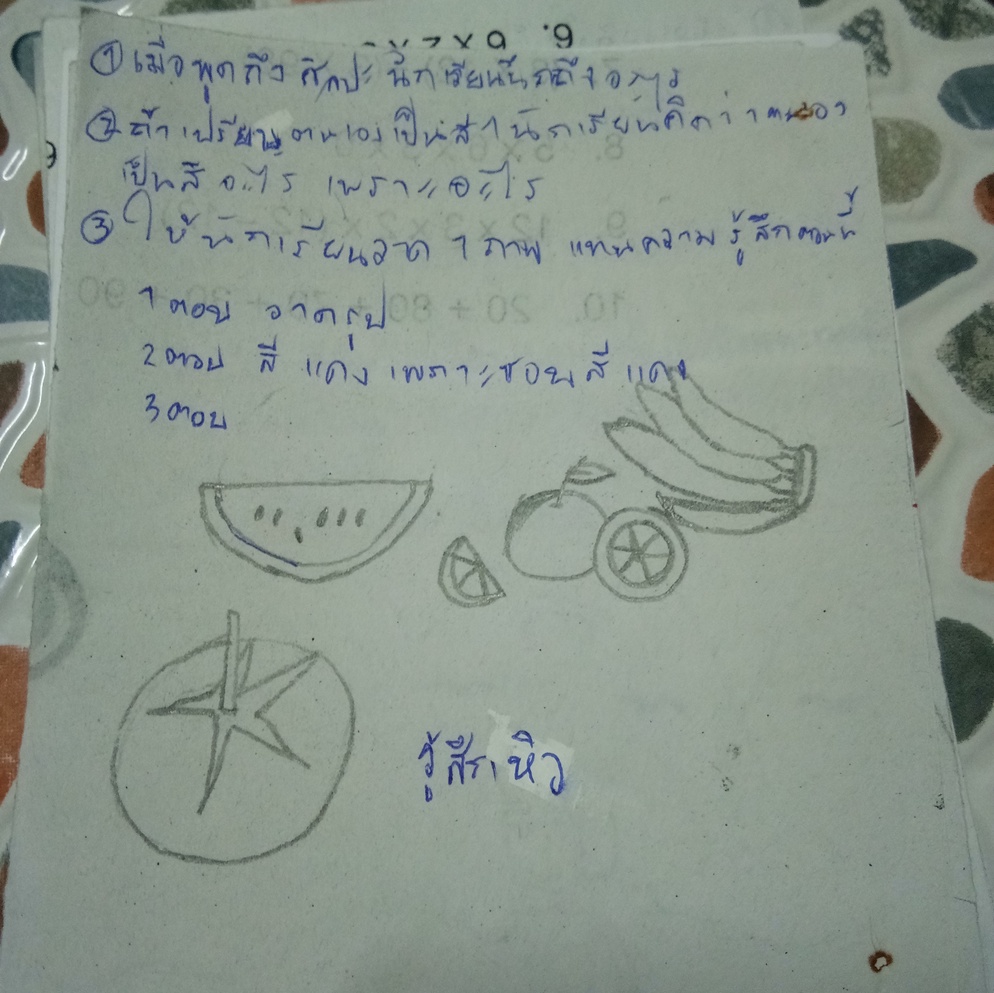 6. 6 × 2
① เมื่อพูดถึง ศิลปะ นักเรียนนึกถึงอะไร
② ถ้าเปรียบตนเองเป็นสี นักเรียนคิดว่าตนเอง
เป็นสีอะไร เพราะอะไร
③ ให้นักเรียนวาด 1 ภาพ แทนความรู้สึกตอนนี้
1 ตอบ วาดรูป
2 ตอบ สีแดง เพราะชอบสีแดง
3 ตอบ
รู้สึกหิว